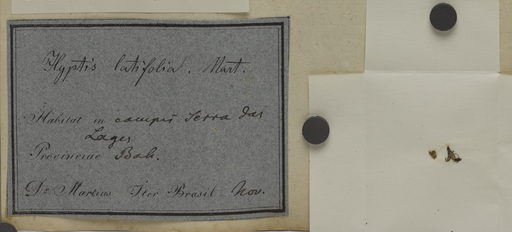 Hyptis latifolia. Mart.
Habitat in campis Serra das
Lages
Provinciae Bah.
Dr. Martius Iter Brasil. Nov.